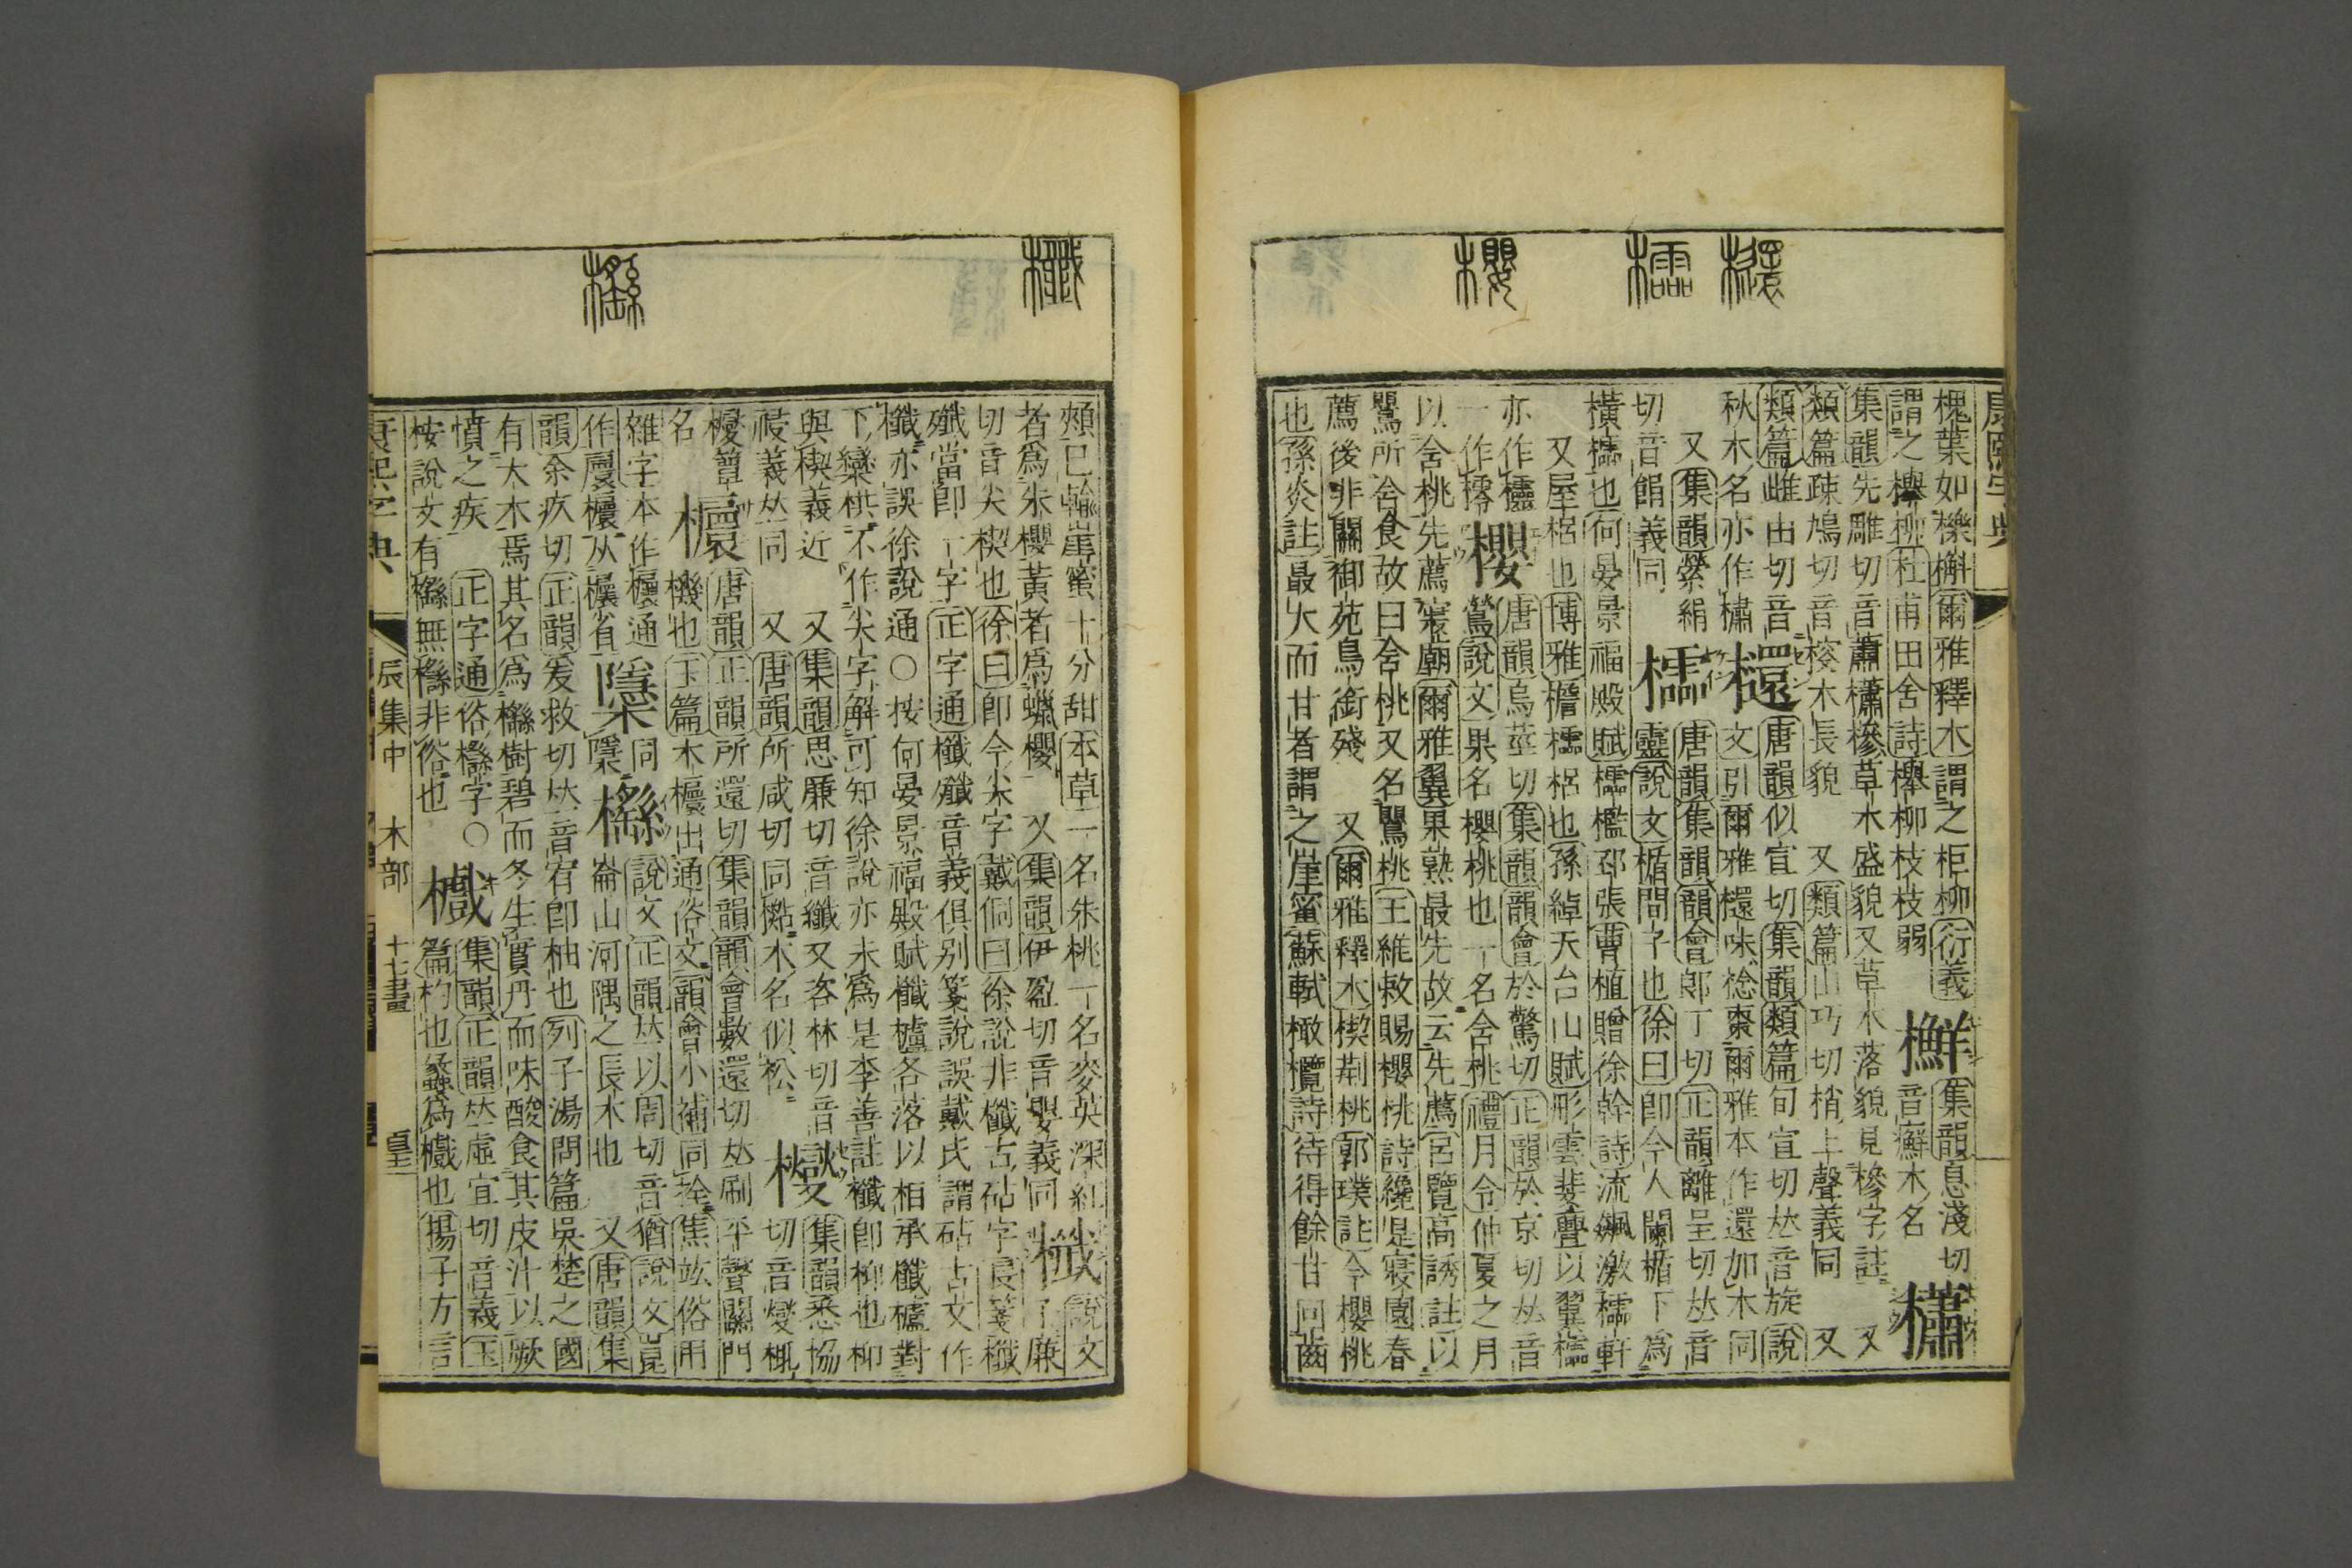 櫺
櫻
槐葉如櫟槲爾雅釋木謂之柜柳衍義 集韻息淺切
謂之櫸柳杜甫田舍詩櫸柳枝枝弱 音癬木名 櫹
集韻先雕切音蕭櫹槮草木盛貌又草木落貌見槮字註 又
類篇疎鳩切音㮴木長貌 又類篇山巧切梢上聲義同 又
類篇雌由切音 唐韻似宣切集韻類篇旬宣切𠀤音旋說
秋木名亦作橚 文引爾雅 味棯棗爾雅本作還加木同
又集韻縈絹 唐韻集韻韻會郎丁切正韻離呈切𠀤音
切音 義同 櫺 靈說文楯間子也徐曰卽今人闌楯下爲
橫櫺也何晏景福殿賦櫺檻邳張曹植贈徐幹詩流飆激櫺軒
又屋梠也博雅櫩櫺梠也孫綽天台山賦彤雲斐亹以翼櫺
亦作欞 唐韻烏莖切集韻韻會於驚切正韻於京切𠀤音
一作㯪 櫻 鶯說文果名櫻桃也一名含桃禮月令仲夏之月
以含桃先薦寢廟爾雅翼果熟最先故云先薦呂覽高誘註以
鸎所含食故曰含桃又名鸎桃王維敕賜櫻桃詩纔是寢園春
薦後非關御苑鳥銜殘 又爾雅釋木楔荆桃郭璞註今櫻桃
也孫炎註最大而甘者謂之崖蜜蘇軾橄欖詩待得餘甘回齒
櫼
櫾
頰已輸崖蜜十分甜本草一名朱桃一名麥英深紅 說文
者爲朱櫻黃者爲蠟櫻 又集韻伊盈切音嬰義同 櫼 子廉
切音尖楔也徐曰卽今尖字戴侗曰徐說非櫼古砧字長箋櫼
殲當卽一字正字通櫼殲音義俱別箋說誤戴氏謂砧古文作
櫼亦誤徐說通○按何晏景福殿賦櫼櫨各落以相承櫼櫨對
下欒栱不作尖字解可知徐說亦未爲是李善註櫼卽枊也枊
與楔義近 又集韻思廉切音纖又咨林切音 集韻悉協
祲義𠀤同 又唐韻所咸切同 木名似松 切音燮榥
唐韻正韻所還切集韻韻會數還切𠀤刷平聲關門
名 機也玉篇木 出通俗文韻會小補同拴焦竑俗用
雜字本作 通 同 說文正韻𠀤以周切音猶說文崑
作 从 省 櫽 櫾 崙山河隅之長木也 又唐韻集
韻余救切正韻爰救切𠀤音宥卽柚也列子湯問篇吳楚之國
有大木焉其名爲櫾樹碧而冬生實丹而味酸食其皮汁以厥
憤之疾 正字通俗 字○ 集韻正韻𠀤虛宜切音羲玉
按說文有櫾無 非俗也 篇杓也蠡爲 也揚子方言
康熙字典 辰集中 木部 十七畫